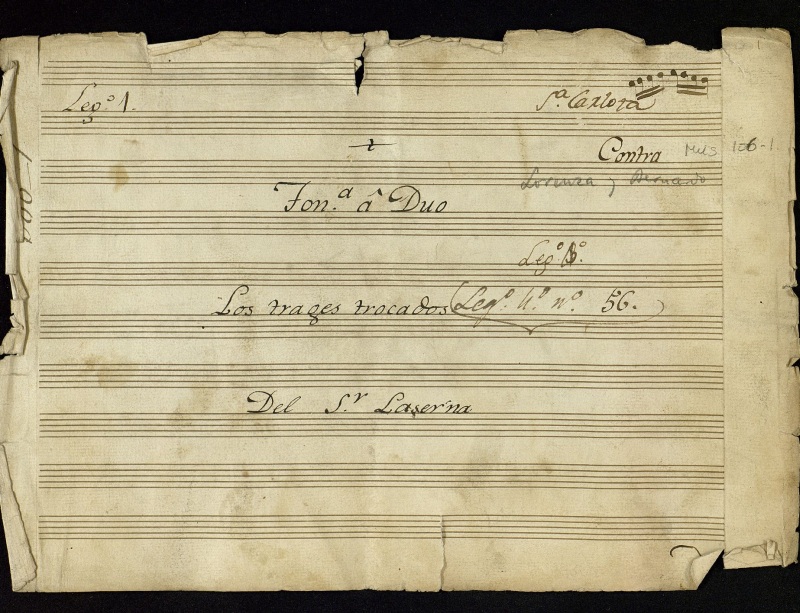 Leg.º 1.
S.ª Carlota
Contra
Mus 106-1
Lorenza y Bernardo
Ton.ª â Duo
Leg.º
Los trages trocados (Leg.º 4.º n.º 56.)
Del S.r Laserna